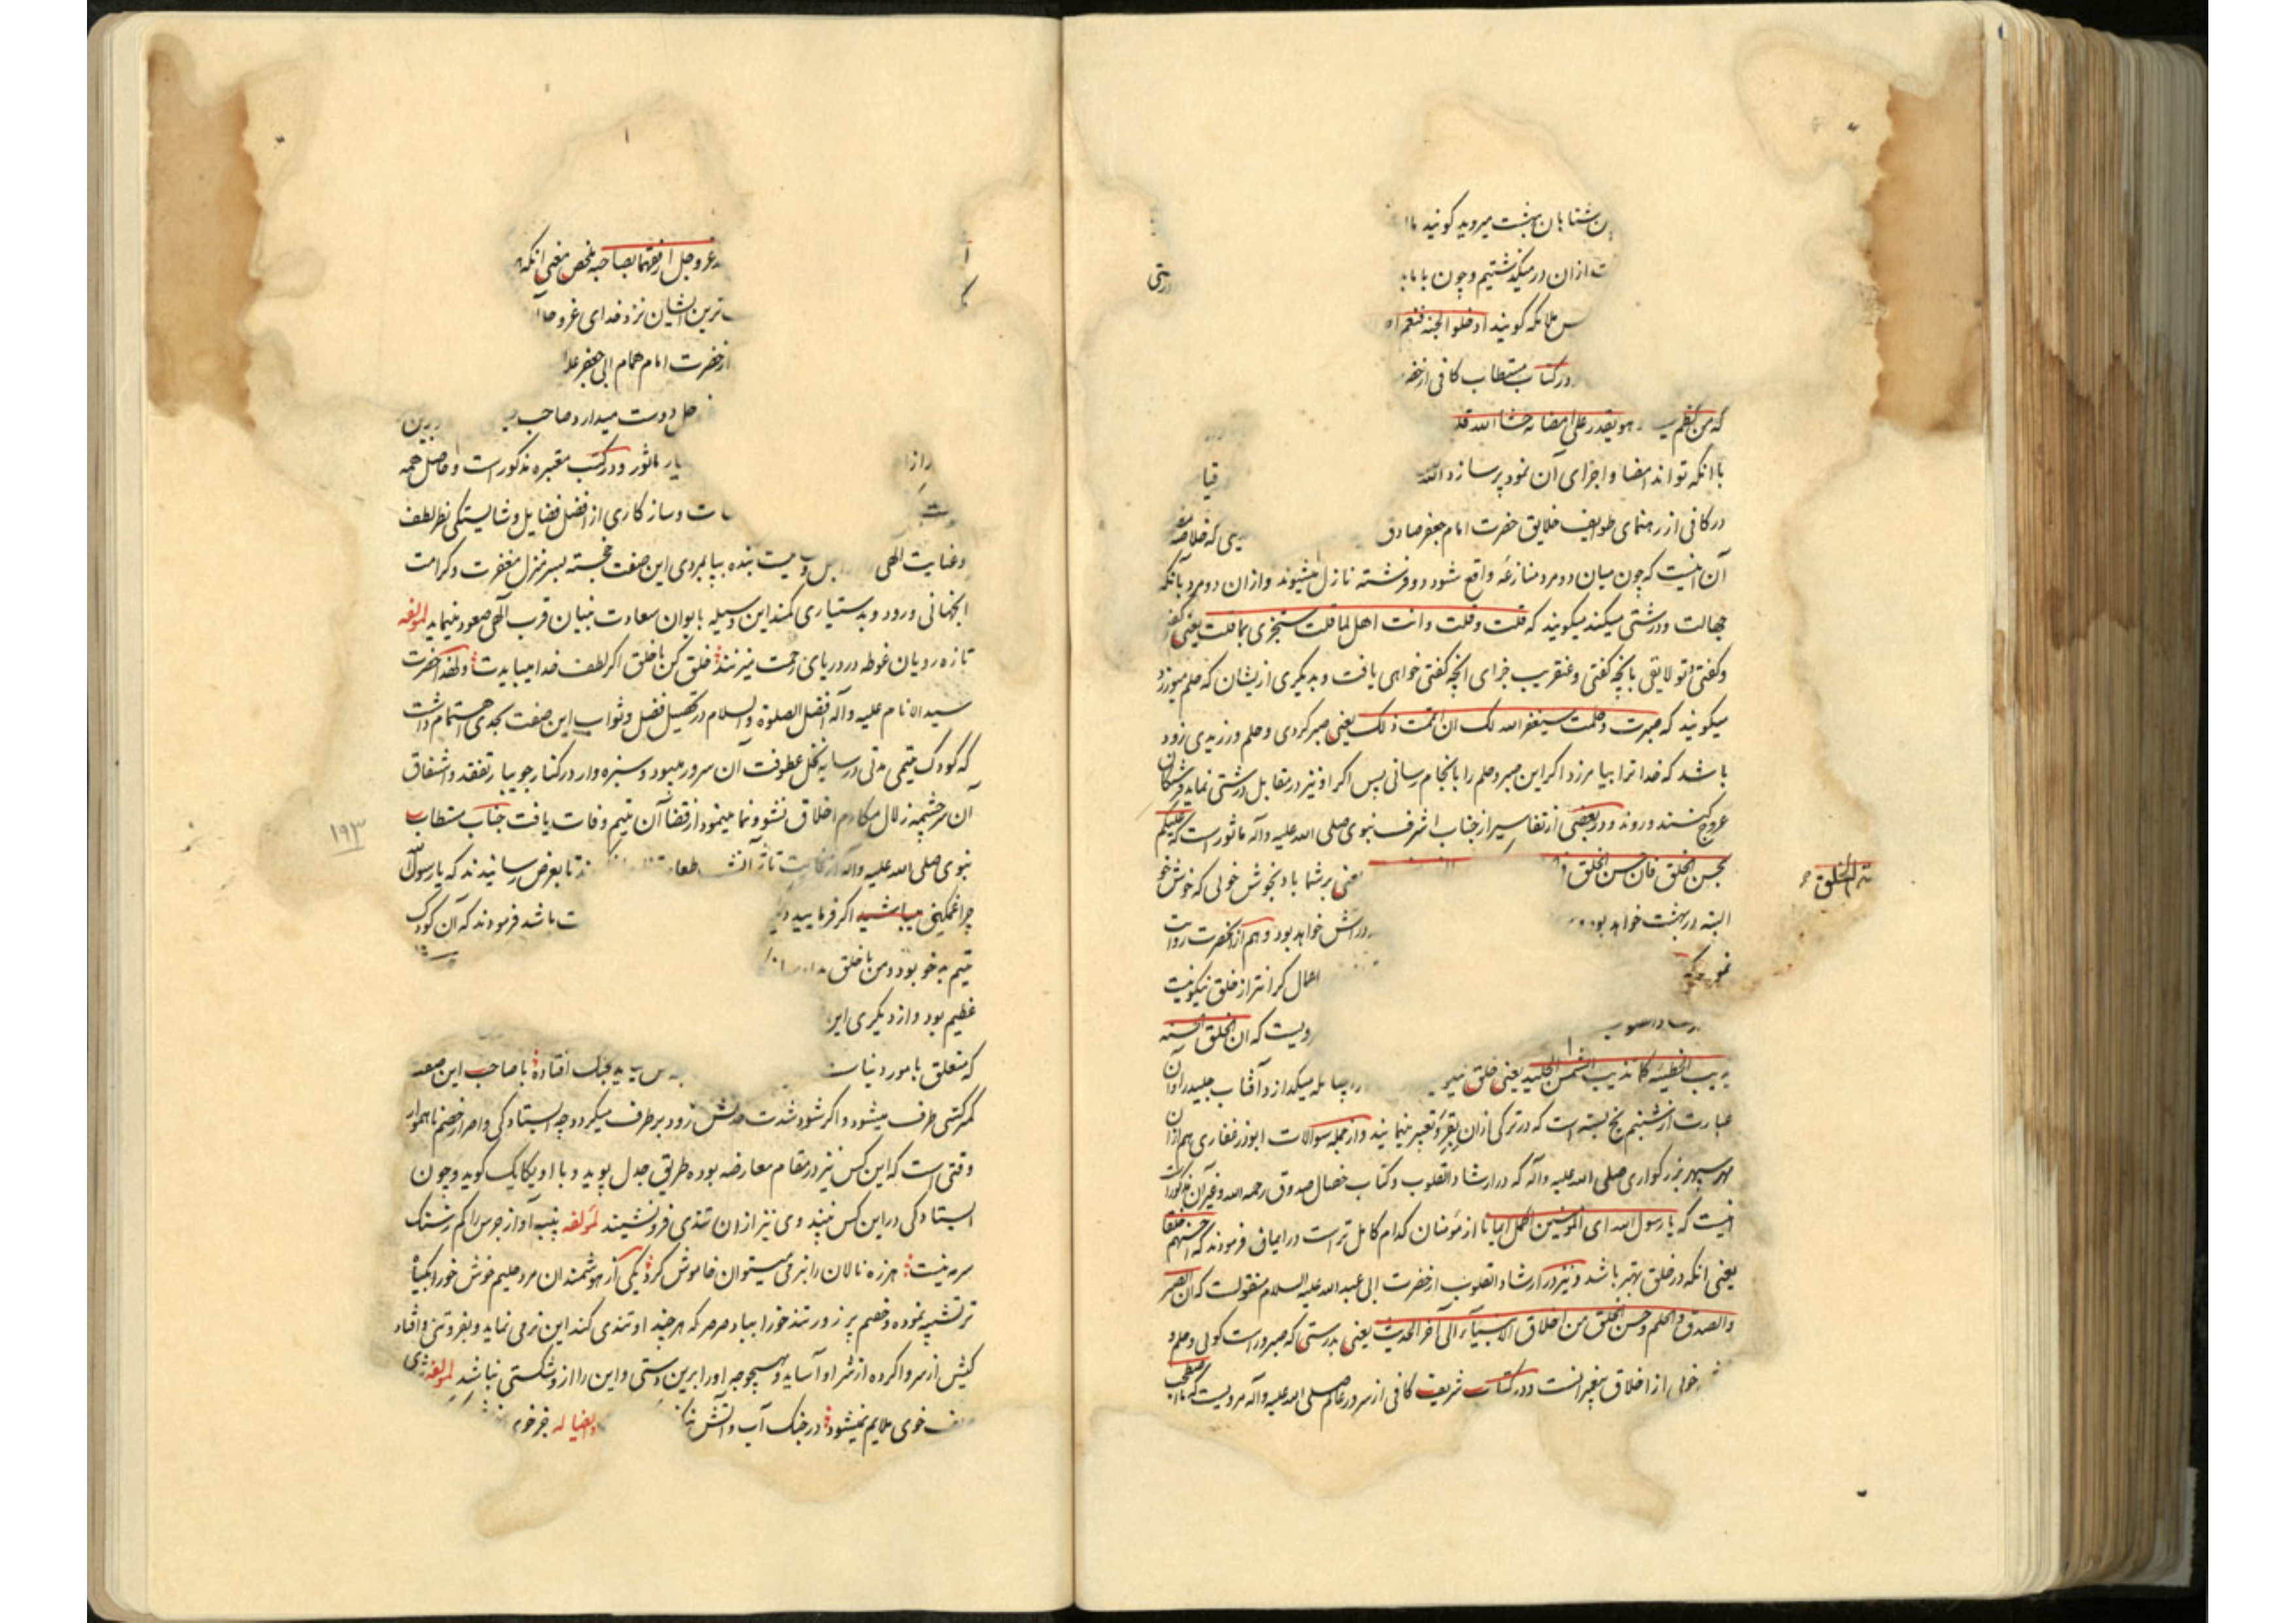 شتابان بهشت میروید گویند ما
ازان درمیگذشتیم و چون با ما
درشتی
ملائکه گویند ادخلوا الجنه فنعم
در کتاب مستطاب کافی از حضر
که من کظم هو یقدر علی امضائه حشا الله قلـ
با آنکه تواند امضا و اجرای آن نمود پر سازد الله
قیا
در کافی از رهنمای طوایف خلایق حضرت امام جعفر صادق که خلاصه
آن اینست که چون میان دو مرد منازعه واقع شود دو فرشته نازل میشوند و ازان دو مرد بآنکه
جهالت و درشتی میکند میگویند که قلت و قلت و انت اهل لما قلت ستجزی بما قلت یعنی گفتی
و گفتی و تو لایقی بآنچه گفتی و عنقریب جزای آنچه گفتی خواهی یافت و بدیگری ازیشان که حلم میورزد
میگویند که صبرت و حلمت سیغفر الله لک ان اتممت ذلک یعنی صبر کردی و حلم ورزیدی زود
باشد که خدا ترا بیامرزد اگر این صبر و حلم را بانجام رسانی پس اگر او نیز در مقابل درشتی نماید فرشتگان
عروج کنند و روند و در بعضی از تفاسیر از جناب اشرف نبوی صلی الله علیه و آله ماثور است که علیکم
بحسن الخلق فان حسن الخلق یعنی بر شما باد بخوش خوئی که خوش خو
الخلق
البته در بهشت خواهد بود در آتش خواهد بود و هم از آنحضرت روایت
نمو که اعمال گرانتر از خلق نیکو نیست
رویست که ان الخلق الحسنه
الخطیئه کما تذیب الشمس الجلید یعنی خلق نیکو میگدازد آفتاب جلید را و آن
عبارت از شبنم یخ بسته است که در ترکی ازان بقرو تعبیر نمایند و از جمله سوالات ابوذر غفاری هم از ان
مهر سپهر بزرگواری صلی الله علیه و آله که در ارشاد القلوب و کتاب خصال صدوق رحمه الله و غیر آن مذکور است
اینست که یا رسول الله ای المؤمنین اکمل ایمانا از مؤمنان کدام کامل تر است در ایمان فرمودند که احسنهم خلقا
یعنی آنکه در خلق بهتر باشد و نیز در ارشاد القلوب از حضرت ابی عبد الله علیه السلام منقولست که ان الصبر
و الصدق و الحلم و حسن الخلق من اخلاق الانبیاء الی آخر الحدیث یعنی بدرستی که صبر و راست گوئی و حلم و
خوئی از اخلاق پیغمبرانست و در کتاب شریف کافی از سرور عالم صلی الله علیه و آله مرویست که ما اصطحب
عز و جل ارفقهما بصاحبه ملخص معنی آنکه
ترین ایشان نزد خدای عز و جل
از حضرت امام همام ابی جعفر علـ
دوست میدارد صاحب
ماثور و در کتب معتبره مذکور است و حاصل همه
و سازگاری از افضل فضایل و شایستگی نظر لطف
و عنایت الهی بنده بپایمردی این صفت خجسته بسر منزل مغفرت و کرامت
آنجهانی ورود و بدستیاری کمند این وسیله بایوان سعادت بنیان قرب الهی صعود مینماید لمؤلفه
تازه رویان غوطه در دریای رحمت میزنند خلق کن با خلق اگر لطف خدا میبایدت و لهذا حضرت
سید الانام علیه و آله افضل الصلوة و السلام در تحصیل فضل و ثواب این صفت بحدی اهتمام داشت
که کودک یتیمی مدتی در سایه نخل عطوفت آن سرور میبود و سبزه وار در کنار جویبار تفقد و اشفاق
آن سرچشمه زلال مکارم اخلاق نشو و نما مینمود از قضا آن یتیم وفات یافت جناب مستطاب
۱۹۳
نبوی صلی الله علیه و آله تا بعرض رسانیدند که یا رسول الله
چرا غمگین میباشید اگر فرمایید باشد فرمودند که آن کودک
یتیم بدخو بود و من با خلق
عظیم بود و از دیگری این
که متعلق بامور دنیاست بجنک افتاده با صاحب این صفت
کمرکشی طرف میشود و اگر شود شدت حدتش زود برطرف میگردد چه ایستادگی و اصرار خصم ناهموار
وقتی است که این کس نیز در مقام معارضه بوده طریق جدل پوید و با او یکایک گوید و چون
ایستادگی در این کس نبیند وی نیز از ان تندی فرو نشیند لمؤلفه پنبه آواز جرس را کم ز سنگ
سرمه نیست هرزه نالان را بنرمی میتوان خاموش کرد یکی از هوشمندان مرد حلیم خوش خو را بگیاه
تر تشبیه نموده و خصم پر زور تند خو را بباد صرصر که هر چند او تندی کند این نرمی نماید و بفروتنی و افتاد
کیش از سر وا کرده از شر او آساید و بهیچ وجه او را برین دستی و این را از و شکستی نباشد لمؤلفه
خوی ملایم نمیشود در جنک آب و آتش و ایضا له